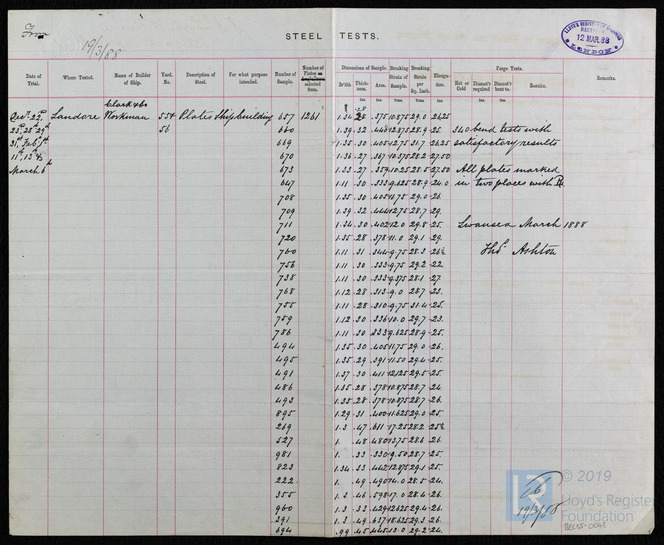 From
19/3/88
STEEL TESTS.
LLOYD'S REGISTER
RECEIVED
12 MAR. 88
Date of Trial. Where Tested. Name of Builder of Ship. Yard. No. Description of Steel. For what purpose intended. Number of Sample. Number of Plates selected from Dimensions of Sample. Br'dth Thickness. Area. Breaking Strain of Sample. Breaking Strain per Sq. Inch. Elongation. Forge Tests. Hot or Cold Diamet'r required Diamet'r bent to. Results. Remarks.
Ins Ins Ins. Tons. Tons Ins. Ins.
Clark & Co
Landore Workman 554 Plates Shipbuilding 657 1261 1.34 .28 .375 10.875 29.0 26.25
23, 28, 29 56 660 1.39 .32 .444 12.875 28.9 .25. 340 bend tests with
669 1.35 .30 .405 12.75 31.7 26.25 satisfactory results
11, 13 & 670 1.36 .27 .367 10.375 28.2 27.50
March 6 673 1.33 .27 .359 10.25 28.5 27.50 All plates marked
647 1.11 .30 .333 9.625 28.9 24.0 in two places with
708 1.35 .30 .405 11.75 29.0 26.
709 1.39 .32 .444 12.75 28.7 29.
711 1.34 .30 .402 12.0 29.8 25. Swansea March 1888
720 1.35 .28 .378 11.0 29.1 29.
700 1.11 .31 .344 9.75 28.3 26½ Thos Ashton
756 1.11 .30 .333 9.75 29.2 22.
738 1.11 .30 .333 9.375 28.1 27.
768 1.12 .28 .313 9.0 28.7 23.
755 1.11 .28 .310 9.75 31.4 25.
759 1.12 .30 .336 10.0 29.7 23.
786 1.11 .30 .333 9.625 28.9 25.
494 1.35 .30 .405 11.75 29.0 26.
495 1.35 .29 .391 11.50 29.4 25.
491 1.37 .30 .411 12.125 29.5 25.
486 1.35 .28 .378 10.875 28.7 24
493 1.35 .28 .378 10.875 28.7 26.
895 1.29 .31 .400 11.625 29.0 25.
269 1.3 .47 .611 17.25 28.2 25½
527 1. .48 .480 13.75 28.6 26.
981 1. .33 .330 9.50 28.7 25.
823 1.34 .33 .442 12.875 29.1 25.
222 1. .49 .490 14.0 28.5 24.
355 1.3 .46 .598 17.0 28.4 26.
960 1.3 .33 .429 12.625 29.4 26.
291 1.3 .49 .637 18.625 29.3 26.
694 .99 .45 .445 13.0 29.2 24.
19/3/88
LR
© 2019
Lloyd's Register
Foundation